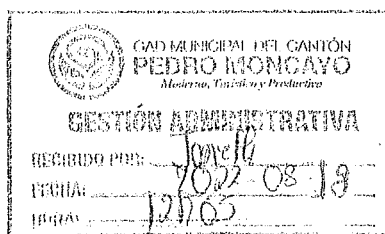 GAD MUNICIPAL DEL CANTÓN
PEDRO MONCAYO
Moderno, Turístico y Productivo
GESTIÓN ADMINISTRATIVA
RECIBIDO POR:
FECHA: 2022-08-19
HORA: 12h05